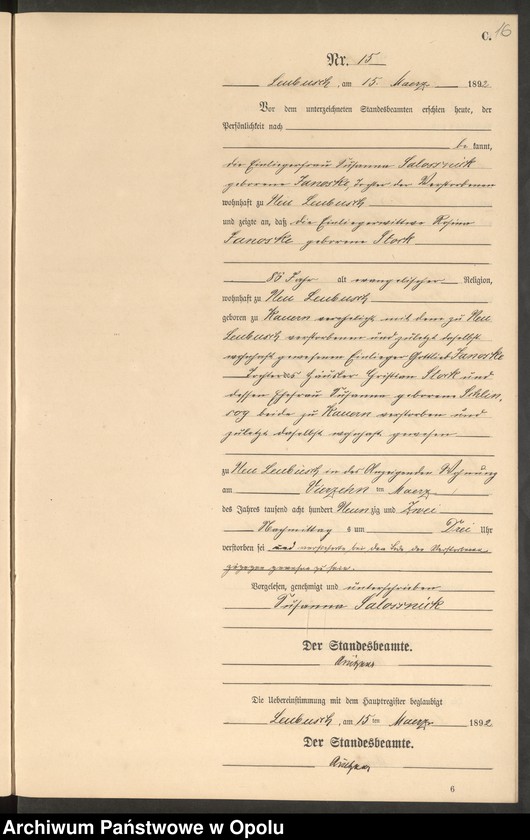 C. 16
Nr. 15
Leubusch, am 15. Maerz 1892
Vor dem unterzeichneten Standesbeamten erschien heute, der
Persönlichkeit nach
be kannt,
die Einliegerfrau Susanna Salossnick
geborene Janoske, Tochter der Verstorbenen
wohnhaft zu Neu Leubusch
und zeigte an, daß die Einliegerwittwe Rosina
Janoske geborene Stork
85 Jahr alt evangelischer Religion,
wohnhaft zu Neu Leubusch
geboren zu Kauern verehelicht mit dem zu Neu
Leubusch verstorbenen und zuletzt daselbst
wohnhaft gewesenen Einlieger Gottlieb Janoske
Tochter des Häusler Christian Stork und
dessen Ehefrau Susanna geborene Schlen,
sog beide zu Kauern verstorben und
zuletzt daselbst wohnhaft gewesen
zu Neu Leubusch in des Anzeigenden Wohnung
am Vierzehn ten Maerz
des Jahres tausend acht hundert Neunzig und Zwei
Nachmittag s um Drei Uhr
verstorben sei und versicherte bei dem Tode der Verstorbenen
zugegen gewesen zu sein.
Vorgelesen, genehmigt und unterschrieben
Susanna Salossnick
Der Standesbeamte.
Die Uebereinstimmung mit dem Hauptregister beglaubigt
Leubusch, am 15 ten Maerz 1892
Der Standesbeamte.
6
Archiwum Państwowe w Opolu